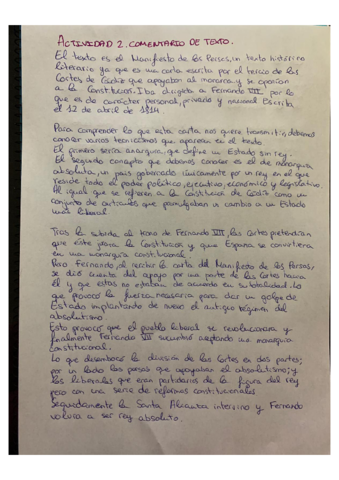 ACTIVIDAD 2. COMENTARIO DE TEXTO.
El texto es el Manifiesto de los Persas, un texto histórico
literario ya que es una carta escrita por el tercio de las
Cortes de Cádiz que apoyaban al monarca y se oponían
a la Constitución. Iba dirigida a Fernando VII, por lo
que es de carácter personal, privado y nacional. Escrita
el 12 de abril de 1814.
Para comprender lo que esta carta nos quiere transmitir debemos
conocer varios tecnicismos que aparecen en el texto.
El primero sería anarquía, que define un Estado sin rey.
El segundo concepto que debemos conocer es el de monarquía
absoluta, un país gobernado únicamente por un rey en el que
reside todo el poder político, ejecutivo, económico y legislativo.
Al igual que se refieren a la Constitución de Cádiz como un
conjunto de artículos que promulgaban un cambio a un Estado
más liberal.
Tras la subida al trono de Fernando VII, las Cortes pretendían
que éste jurara la Constitución y que España se convirtiera
en una monarquía constitucional.
Pero Fernando, al recibir la carta del Manifiesto de los Persas,
se dió cuenta del apoyo por una parte de las Cortes hacia
él y que estas no estaban de acuerdo en su totalidad. Lo
que provocó la fuerza necesaria para dar un golpe de
Estado implantando de nuevo el antiguo régimen del
absolutismo.
Esto provocó que el pueblo liberal se revolucionara y
finalmente Fernando VII sucumbió aceptando una monarquía
constitucional.
Lo que desembocó la división de las Cortes en dos partes;
por un lado los persas que apoyaban el absolutismo; y
los liberales que eran partidarios de la figura del rey
pero con una serie de reformas constitucionales
Seguidamente la Santa Alianza intervino y Fernando
volvía a ser rey absoluto.